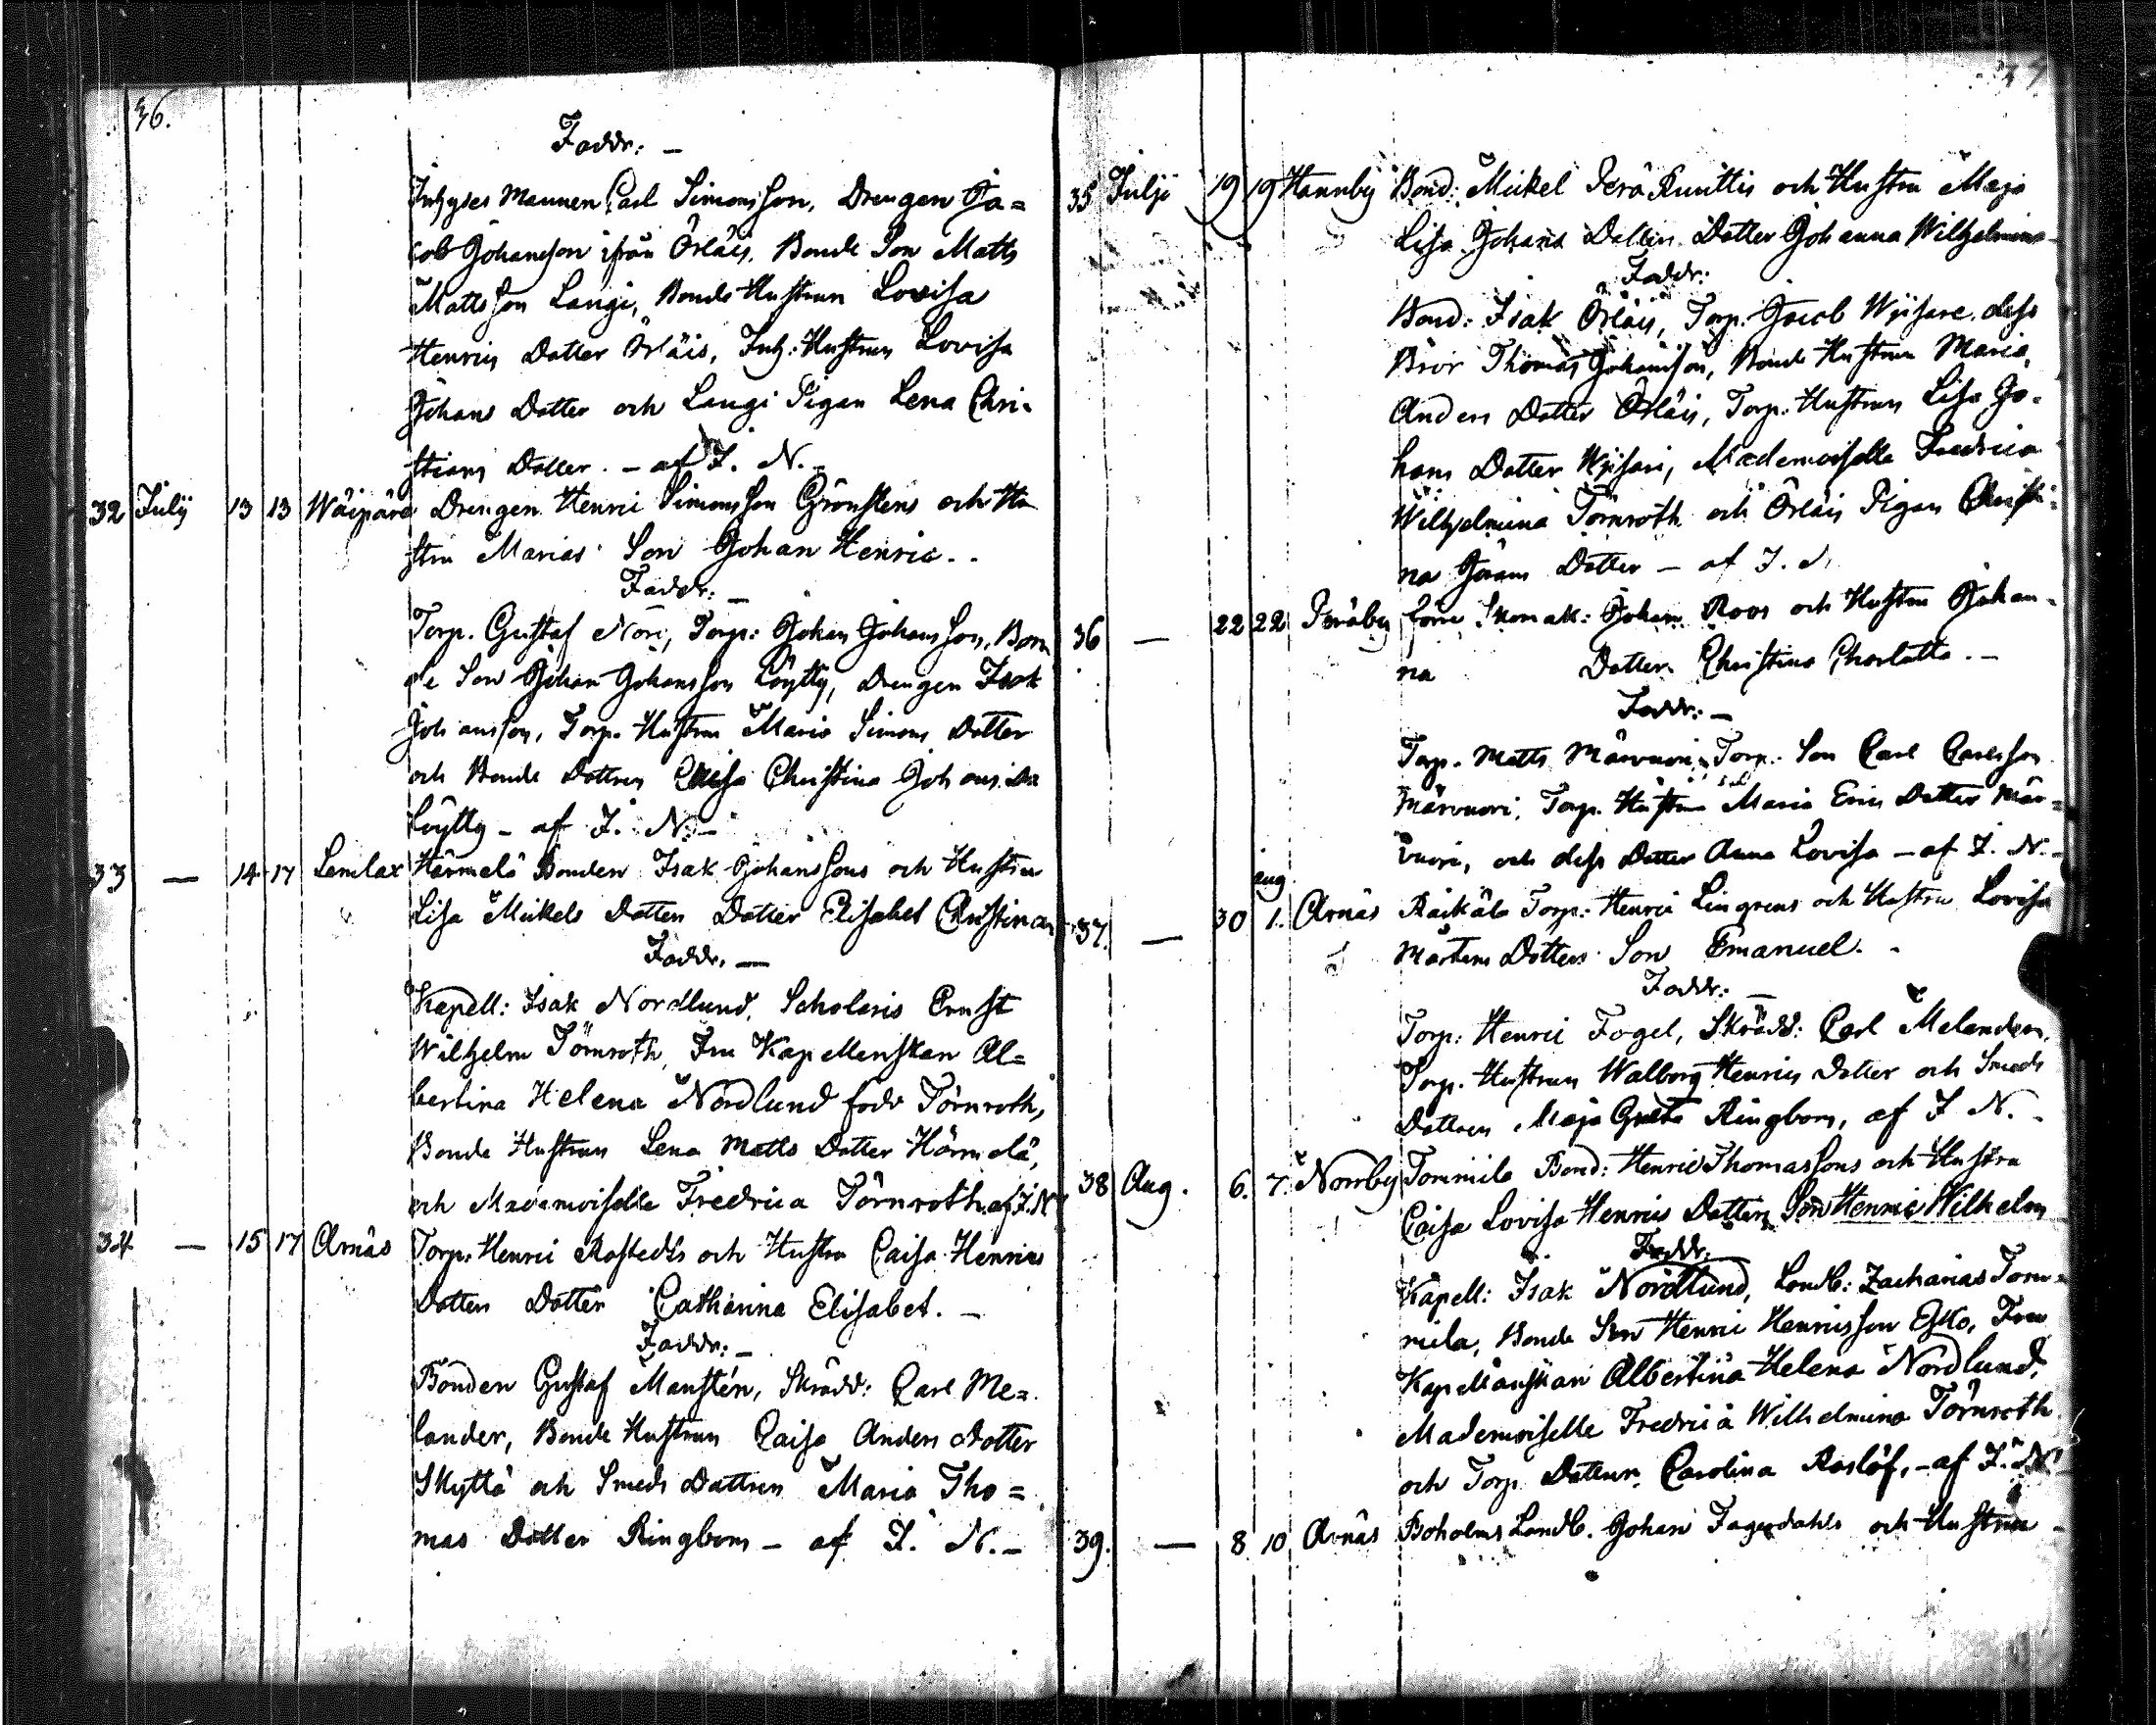 36.
Faddr: —
Inhyses Mannen Carl Simonsson, Drengen Ja=
cob Johansson ifrån Örläis, Bonde Son Matts
Mattsson Langi, Bonde Hustrun Lovisa
Henrics Dotter Örläis, Inh: Hustrun Lovisa
Johans Dotter och Langi Pigan Lena Chri-
stians Dotter. — af I. N. —
32 July 13 13 Wäipärä Drengen Henric Simonsson Grönstens och Hu
stru Marias Son Johan Henric. -
Faddr: —
Torp. Gustaf Nori, Torp: Johan Johansson, Bon
de Son Johan Johansson Löytty, Drengen Isak
Johansson, Torp. Hustrun Maria Simons Dotter
och Bonde Dottren Christina Johans
Löytty — af I. N. —
33 — 14 17 Lemlax Härmelä Bonden Isak Johanssons och Hustru
Lisa Mickels Dotters Dotter Elisabet Christina
Faddr. —
Kapell: Isak Nordlund, Scholaris Ernst
Wilhelm Törnroth, Fru Kapellanskan Al=
bertina Helena Nordlund född Törnroth,
Bonde Hustrun Lena Matts Dotter Härmelä,
och Mademoiselle Fredrica Törnroth af I. N
34 — 15 17 Arnäs Torp: Henric Rostedts och Hustru Caisa Henrics
Dotters Dotter Catharina Elisabet. —
Faddr: —
Bonden Gustaf Manstén, Skrädd: Carl Me=
lander, Bonde Hustrun Caisa Anders Dotter
Skyttä och Smeds Dottren Maria Tho=
mas Dotter Ringbom — af I. N. —
35 Julji 19 19 Hannby Bond: Mickel Perä Kunittis och Hustru Maja
Lisa Johans Dotters Dotter Johanna Wilhelmina
Faddr:
Bond: Isak Örläis, Torp: Jacob Wjisare, dess
Bror Thomas Johansson, Bonde Hustrun Maria
Anders Dotter Örläis, Torp: Hustrun Lisa Jo-
hans Dotter Wjisari, Mademoiselle Fredrica
Wilhelmina Törnroth och Örläis Pigan Christi-
na Görans Dotter — af I. N.
36 — 22 22 Peräby Skomak: Johan Roos och Hustru Johan-
na Dotter Christina Charlotta. —
Faddr: —
Torp. Matts Märvuori, Torp: Son Carl Carlsson
Märvuori, Torp. Hustrun Maria Erics Dotter Mär=
vuori, och dess Dotter Anna Lovisa — af I. N. —
Aug.
37. — 30 1. Arnäs Räikälä Torp: Henric Lingrens och Hustru Lovisa
Mårtens Dotters Son Emanuel. -
Faddr: —
Torp: Henric Fogel, Skrädd: Carl Melander,
Torp. Hustrun Walborg Henrics Dotter och Smeds
Dottren Maja Greta Ringbom, af I. N. -
38 Aug. 6. 7. Norrby Tommila Bond: Henric Thomassons och Hustru
Caisa Lovisa Henrics Dotters Son Henric Wilhelm
Faddr:
Kapell: Isak Nordlund, Landb: Zacharias Tom=
mila, Bonde Son Henric Henricsson Esko, Fru
Kapellanskan Albertina Helena Nordlund,
Mademoiselle Fredrica Wilhelmina Törnroth
och Torp. Dottren Carolina Roslöf, — af I. N.
39. — 8 10 Arnäs Boholms Landb. Johan Fagerdahls och Hustru -